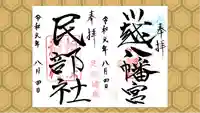 奉拝
川越八幡宮
令和元年 八月四日
奉拝
民部社
令和元年 八月四日